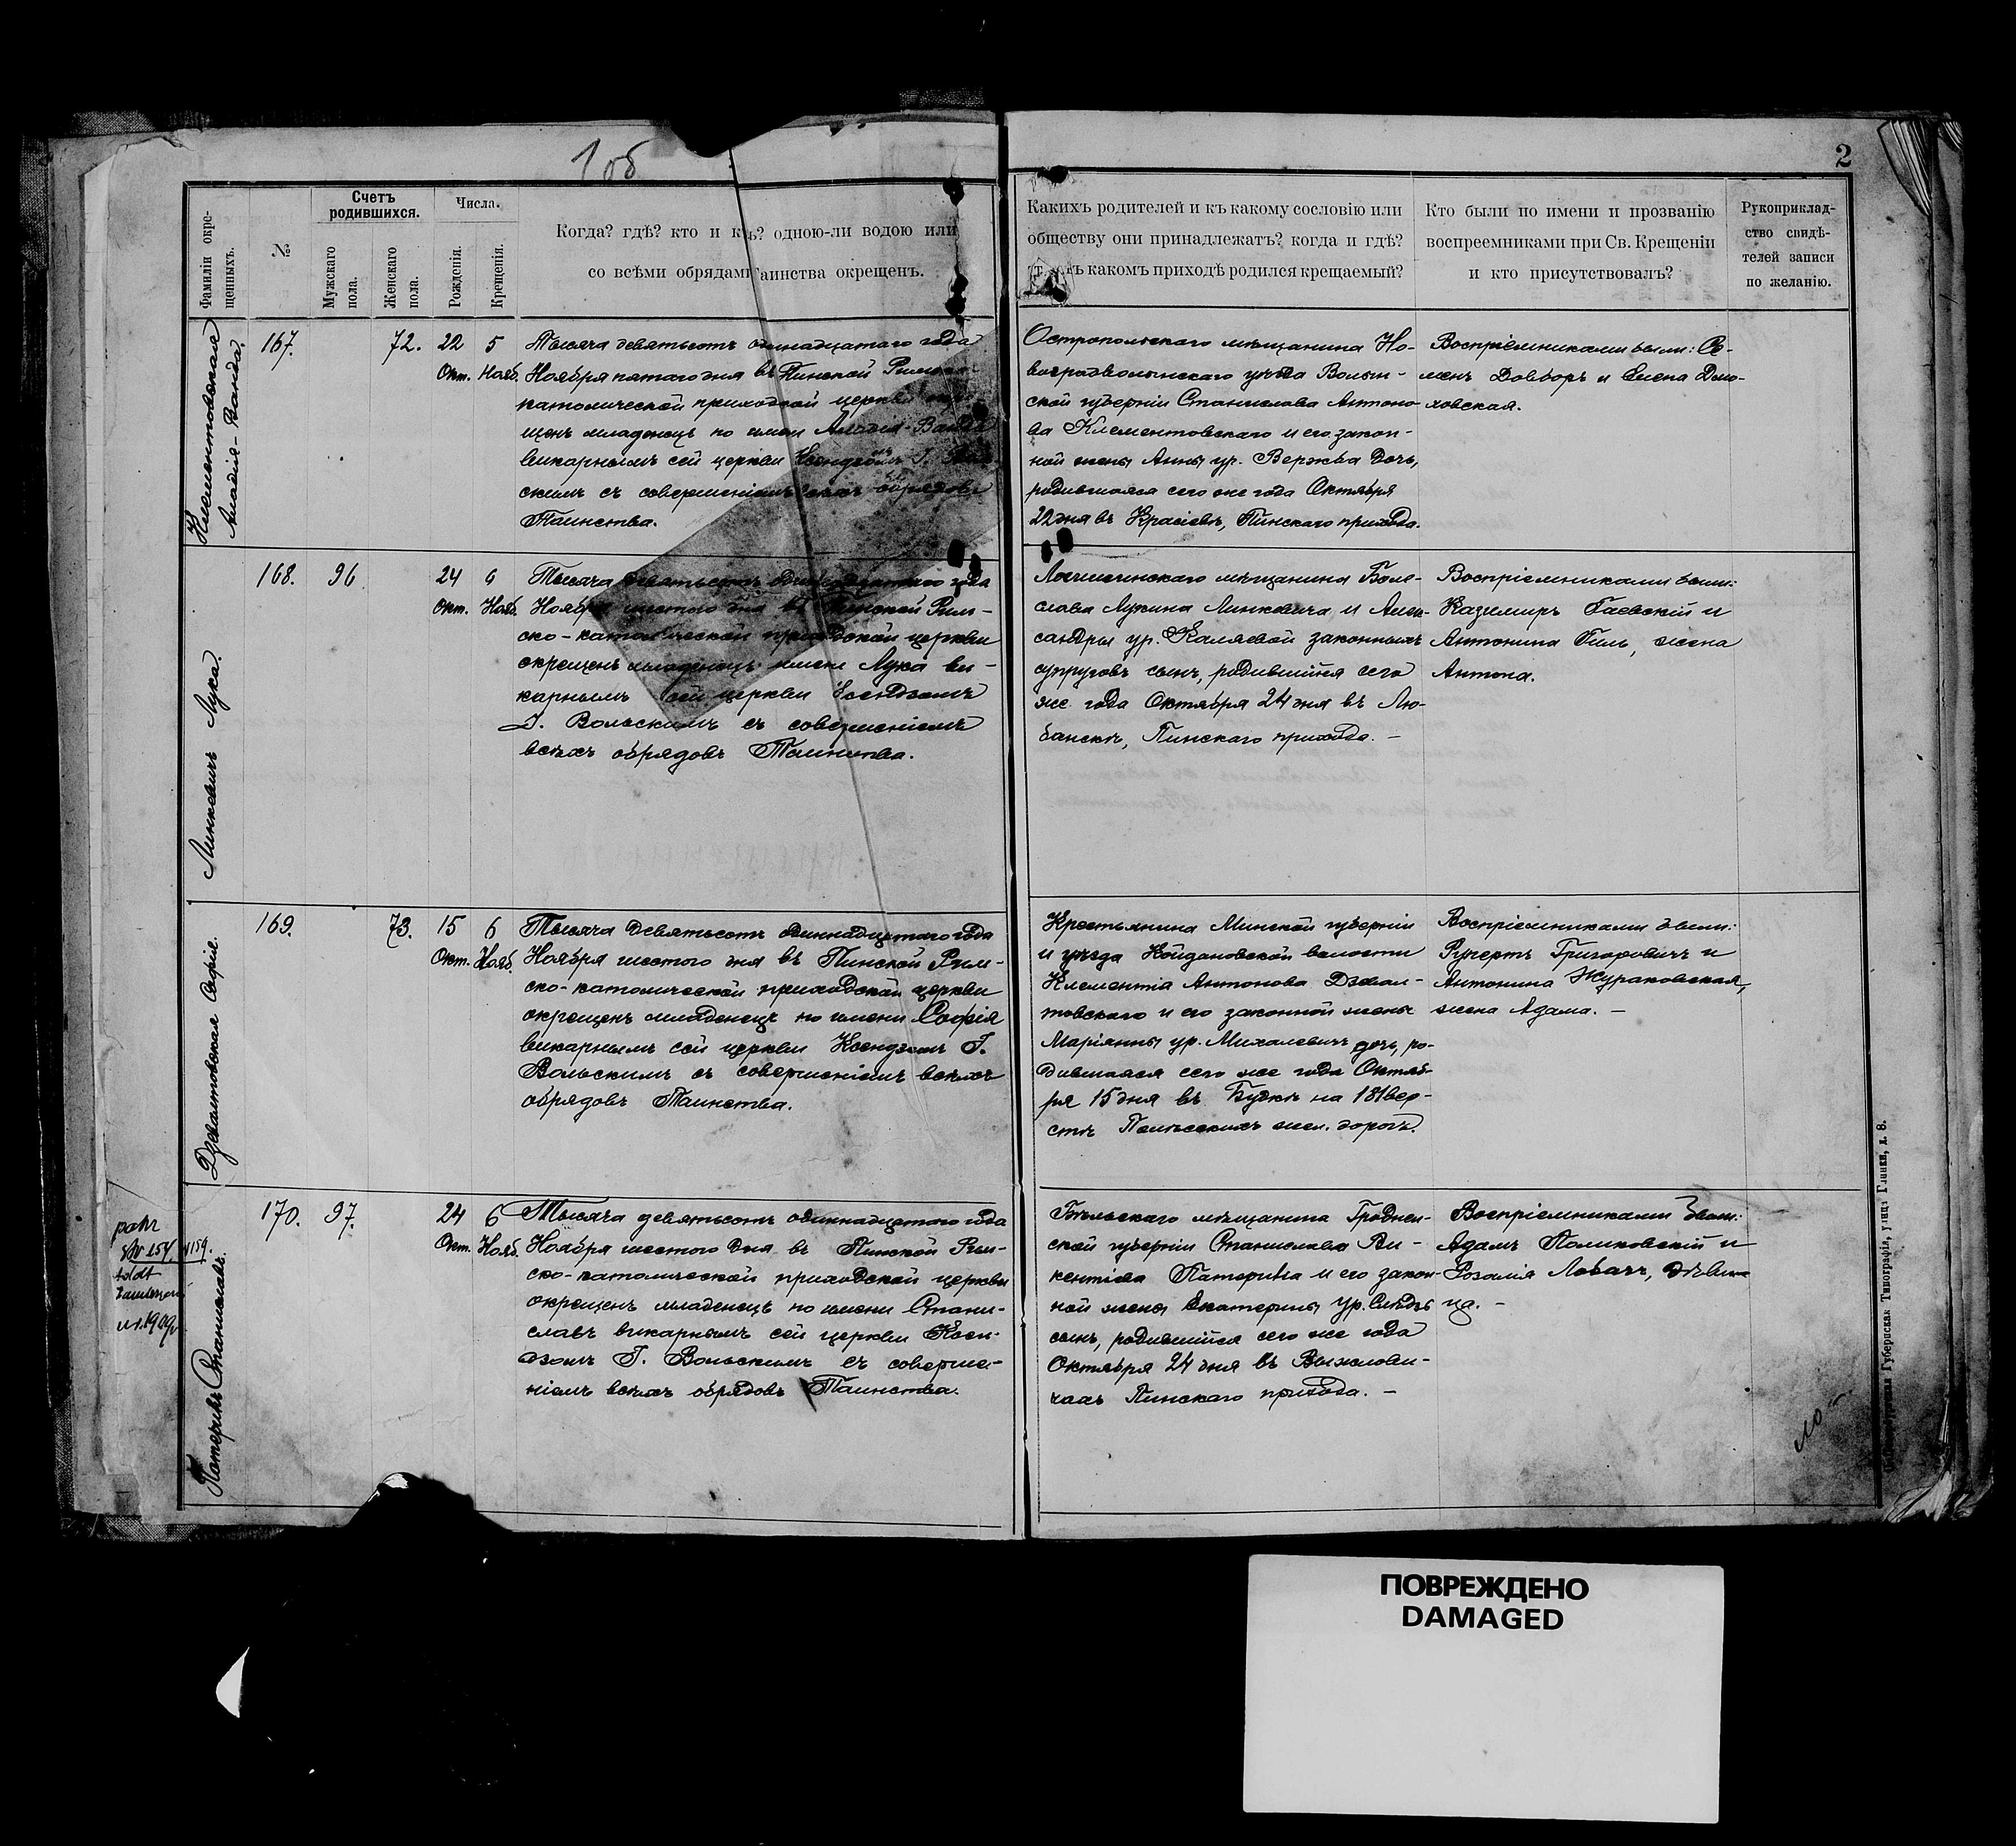 1об
2
Фамиліи окре-
щенныхъ.
№
Счетъ
родившихся.
Мужскаго
пола.
Женскаго
пола.
Числа.
Рожденія.
Крещенія.
Когда? гдѣ? кто и къ? одною-ли водою или
со всѣми обрядами Таинства окрещенъ.
Какихъ родителей и къ какому сословію или
обществу они принадлежатъ? когда и гдѣ?
въ какомъ приходѣ родился крещаемый?
Кто были по имени и прозванію
воспреемниками при Св. Крещеніи
и кто присутствовалъ?
Рукоприклад-
ство свидѣ-
телей записи
по желанію.
Клементовская
Амалія-Ванда.
167.
72.
22
Окт.
5
Нояб.
Тысяча девятьсотъ одинадцатаго года
Ноября пятаго дня въ Пинской Римско-
католической приходской церкви окре-
щенъ младенецъ по имени Амалія-Ванда
викарнымъ сей церкви Ксендзомъ І. Воль-
скимъ съ совершеніемъ всѣхъ обрядовъ
Таинства.
Остропольскаго мѣщанина Но-
воградволынскаго уѣзда Волын-
ской губерніи Станислава Антоно-
ва Клементовскаго и его закон-
ной жены Анны ур. Вержба дочь,
родившаяся сего же года Октября
22 дня въ Красіевѣ, Пинскаго прихода.
Воспріемниками были: Се-
менъ Довборъ и Елена Дмо-
ховская.
Линкевичъ Лука.
168.
96
24
Окт.
6
Нояб.
Тысяча девятьсотъ одинадцатаго года
Ноября шестого дня въ Пинской Рим-
ско-католической приходской церкви
окрещенъ младенецъ имени Лука ви-
карнымъ сей церкви Ксендзомъ
І. Вольскимъ съ совершеніемъ
всѣхъ обрядовъ Таинства.
Логишинскаго мѣщанина Боле-
слава Лукина Линкевича и Алек-
сандры ур. Каляевой законныхъ
супруговъ сынъ, родившійся сего
же года Октября 24 дня въ Лю-
банскѣ, Пинскаго прихода. –
Воспріемниками были:
Казимиръ Гаевскій и
Антонина Гиль, жена
Антона.
Джалтовская Софія.
169.
73.
15
Окт.
6
Нояб.
Тысяча девятьсотъ одиннадцатаго года
Ноября шестого дня въ Пинской Рим-
ско-католической приходской церкви
окрещенъ младенецъ по имени Софія
викарнымъ сей церкви Ксендзомъ І.
Вольскимъ съ совершеніемъ всѣхъ
обрядовъ Таинства.
Крестьянина Минской губерніи
и уѣзда Койдановской волости
Клементія Антонова Джал-
товскаго и его законной жены
Маріянны ур. Михалевичъ дочь, ро-
дившаяся сего же года Октяб-
ря 15 дня въ Будкѣ на 181 вер-
стѣ Полѣсскихъ жел. дорогъ.
Воспріемниками были:
Рупертъ Григоровичъ и
Антонина Жураковская,
жена Адама. –
Патерикъ Станиславъ.
170.
97.
24
Окт.
6
Нояб.
Тысяча девятьсотъ одиннадцатаго года
Ноября шестого дня въ Пинской Рим-
ско-католической приходской церкви
окрещенъ младенецъ по имени Стани-
славъ викарнымъ сей церкви Ксен-
дзомъ І. Вольскимъ съ соверше-
ніемъ всѣхъ обрядовъ Таинства.
Бѣльскаго мѣщанина Гроднен-
ской губерніи Станислава Ви-
кентіева Патерика и его закон-
ной жены Екатерины ур. Слѣдзь
сынъ, родившійся сего же года
Октября 24 дня въ Выжлови-
чахъ Пинскаго прихода. –
Воспріемниками были:
Адамъ Поликовскій и
Розалія Ловачъ, дѣви-
ца. –
Губернская Типографія, улица Глинки, д. 8.
ПОВРЕЖДЕНО
DAMAGED